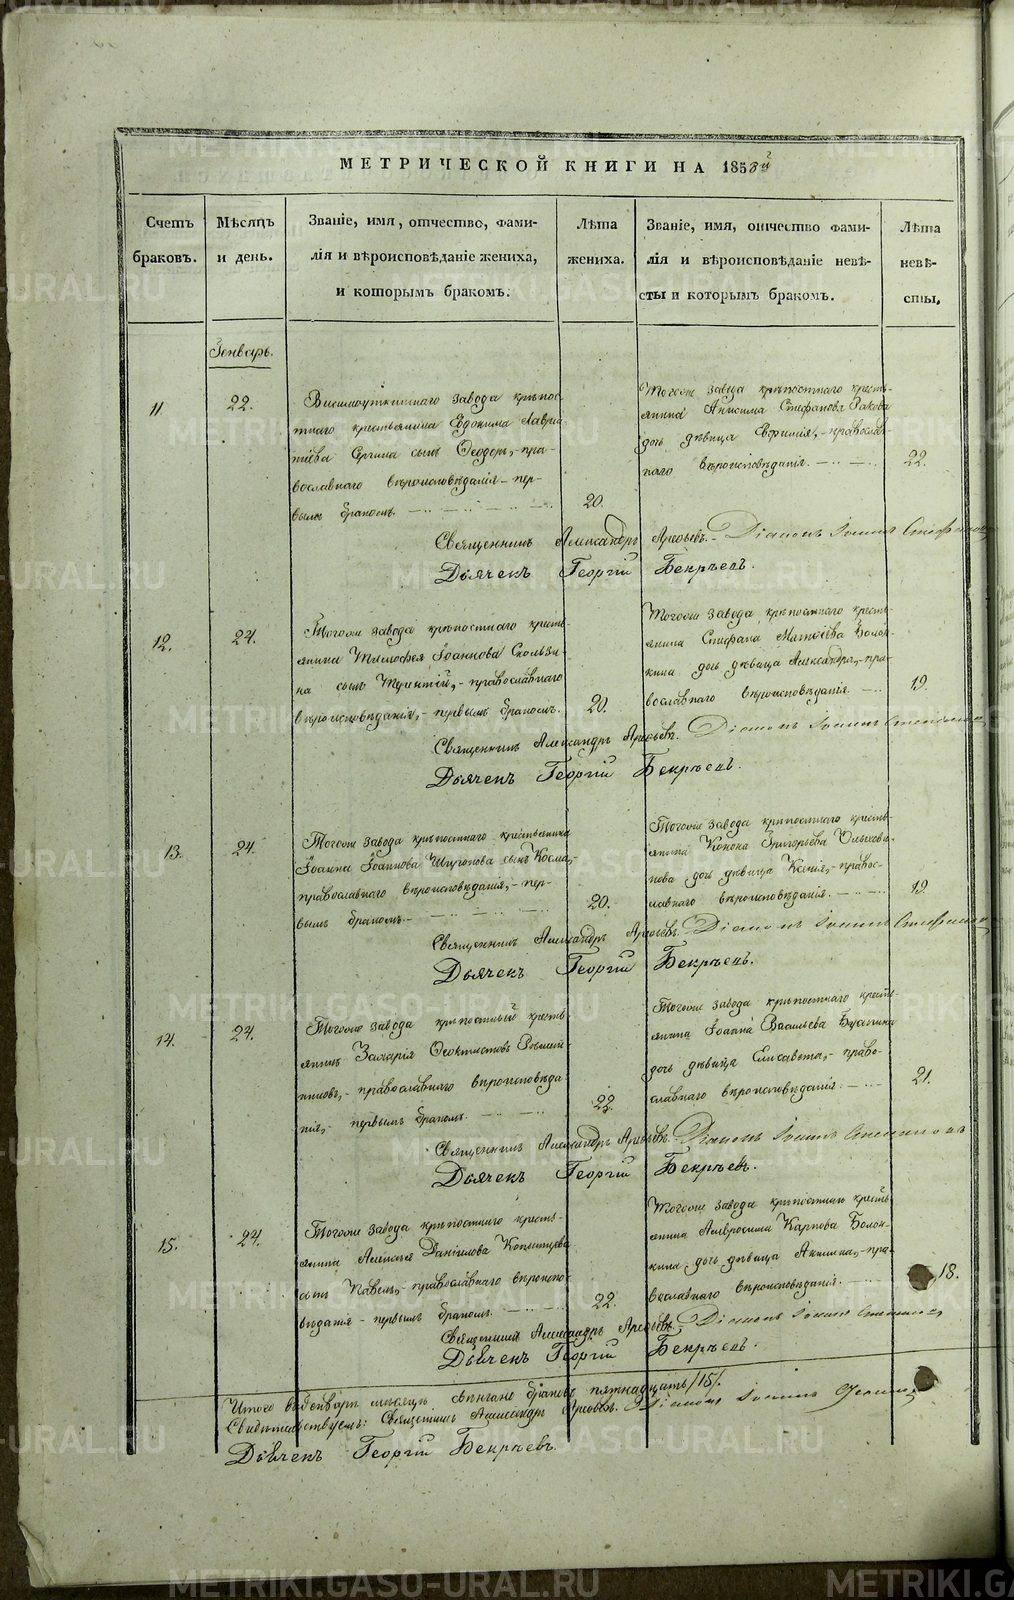 МЕТРИЧЕСКОЙ КНИГИ НА 1858й
Счетъ браковъ.
Мѣсяцъ и день.
Званіе, имя, отчество, фами-
лія и вѣроисповѣданіе жениха,
и которымъ бракомъ.
Лѣта жениха.
Званіе, имя, отчество фами-
лія и вѣроисповѣданіе невѣ-
сты и которымъ бракомъ.
Лѣта невѣ-
сты.
Генварь.
11
22.
Висимоуткинскаго завода крѣпос-
тнаго крестьянина Евдокима Лаврен-
тіева Сергина сынъ Ѳеодоръ,- пра-
вославнаго вѣроисповѣданія - пер-
вымъ бракомъ.
20.
Тогоже завода крѣпостнаго кресть-
янина Анисима Стефанова Ракова
дочь дѣвица Евфимія,- православ-
наго вѣроисповѣданія.
22.
Священникъ Александръ Арефьевъ. Діаконъ Іоаннъ
Дьячекъ Георгій Бекрѣевъ.
12.
24.
Тогоже завода крѣпостнаго кресть-
янина Тимоѳея Іоаннова Скользи-
на сынъ Терентій,- православнаго
вѣроисповѣданія,- первымъ бракомъ.
20.
Тогоже завода крѣпостнаго кресть-
янина Стефана Матѳіева Болон-
кина дочь дѣвица Александра,- пра-
вославнаго вѣроисповѣданія.
19.
Священникъ Александръ Арефьевъ. Діаконъ Іоаннъ
Дьячекъ Георгій Бекрѣевъ.
13.
24.
Тогоже завода крѣпостнаго крестьянина
Іоанна Іоаннова сынъ Косма,-
православнаго вѣроисповѣданія,- пер-
вымъ бракомъ.
20.
Тогоже завода крѣпостнаго кресть-
янина Конона Григорьева
дочь дѣвица Ксенія,- правос-
лавнаго вѣроисповѣданія.
19.
Священникъ Александръ Арефьевъ. Діаконъ Іоаннъ
Дьячекъ Георгій Бекрѣевъ.
14.
24.
Тогоже завода крѣпостный кресть-
янинъ Захарія Ѳеоктистовъ
православнаго вѣроисповѣда
нія,- первымъ бракомъ.
22.
Тогоже завода крѣпостнаго кресть-
янина Іоанна Васильева
дочь дѣвица Елисавета,- право-
славнаго вѣроисповѣданія.
21.
Священникъ Александръ Арефьевъ. Діаконъ Іоаннъ
Дьячекъ Георгій Бекрѣевъ.
15.
24.
Тогоже завода крѣпостнаго кресть-
янина Алексѣя Даніилова
сынъ Павелъ,- православнаго вѣроиспо-
вѣданія - первымъ бракомъ.
22.
Тогоже завода крѣпостнаго кресть-
янина Амвросима Карпова Болон-
кина дочь дѣвица Акилина,- пра-
вославнаго вѣроисповѣданія.
18.
Священникъ Александръ Арефьевъ. Діаконъ Іоаннъ
Дьячекъ Георгій Бекрѣевъ.
Итого въ Генварѣ мѣсяцѣ вѣнчано браковъ пятнадцать /15/.
Свидѣтельствуемъ: Священникъ Александръ Арефьевъ. Діаконъ Іоаннъ
Дьячекъ Георгій Бекрѣевъ.
METRIKI.GASO-URAL.RU